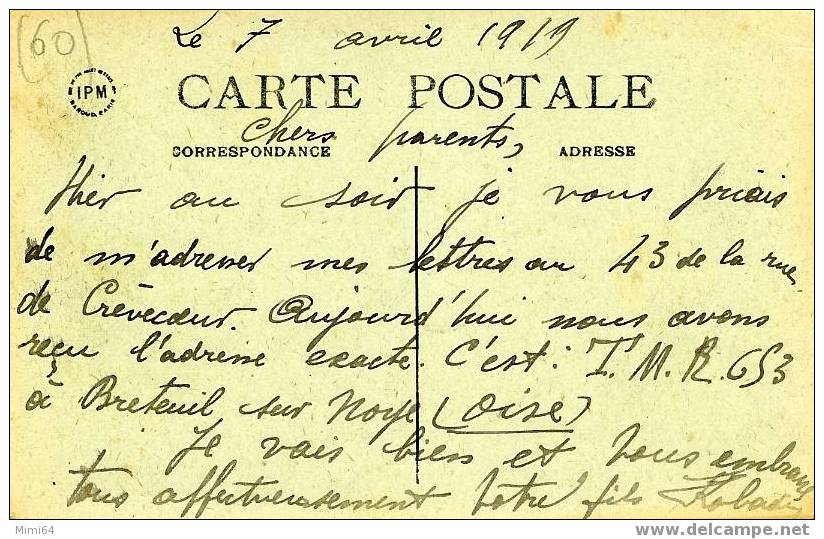 (60)
Le 7 avril 1919
IPM
CARTE POSTALE
Chers parents,
CORRESPONDANCE ADRESSE
Hier au soir je vous priais
de m'adresser mes lettres au 43 de la rue
de Crèvecœur. Aujourd'hui nous avons
reçu l'adresse exacte. C'est : T.M.R. 653
à Breteuil sur Noye (Oise)
Je vais bien et vous embrasse
tous affectueusement Votre fils
Mimi64
delcampe.net